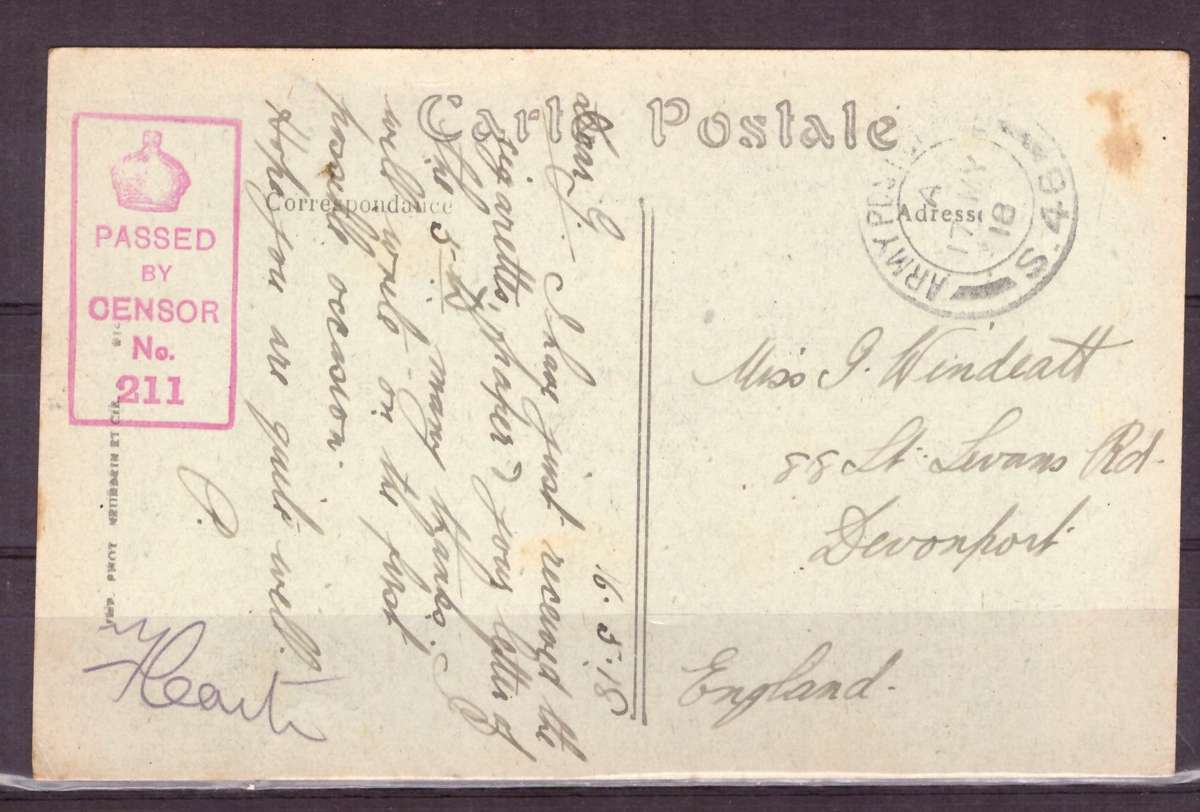 Carte Postale
Correspondance
Adresse
PASSED
BY
CENSOR
No.
211
ARMY POST OFFICE
S.48
A
17 MY
18
16.5.18
Dear G. I have just received the
cigarettes, paper & your letter of
the 5th many thanks. I
will write on the first
possible occasion.
Hope you are quite well.
P.
Miss G. Windeatt
88 St. Levans Rd.
Devonport
England.
IMP. PHOT. NEURDEIN ET CIE